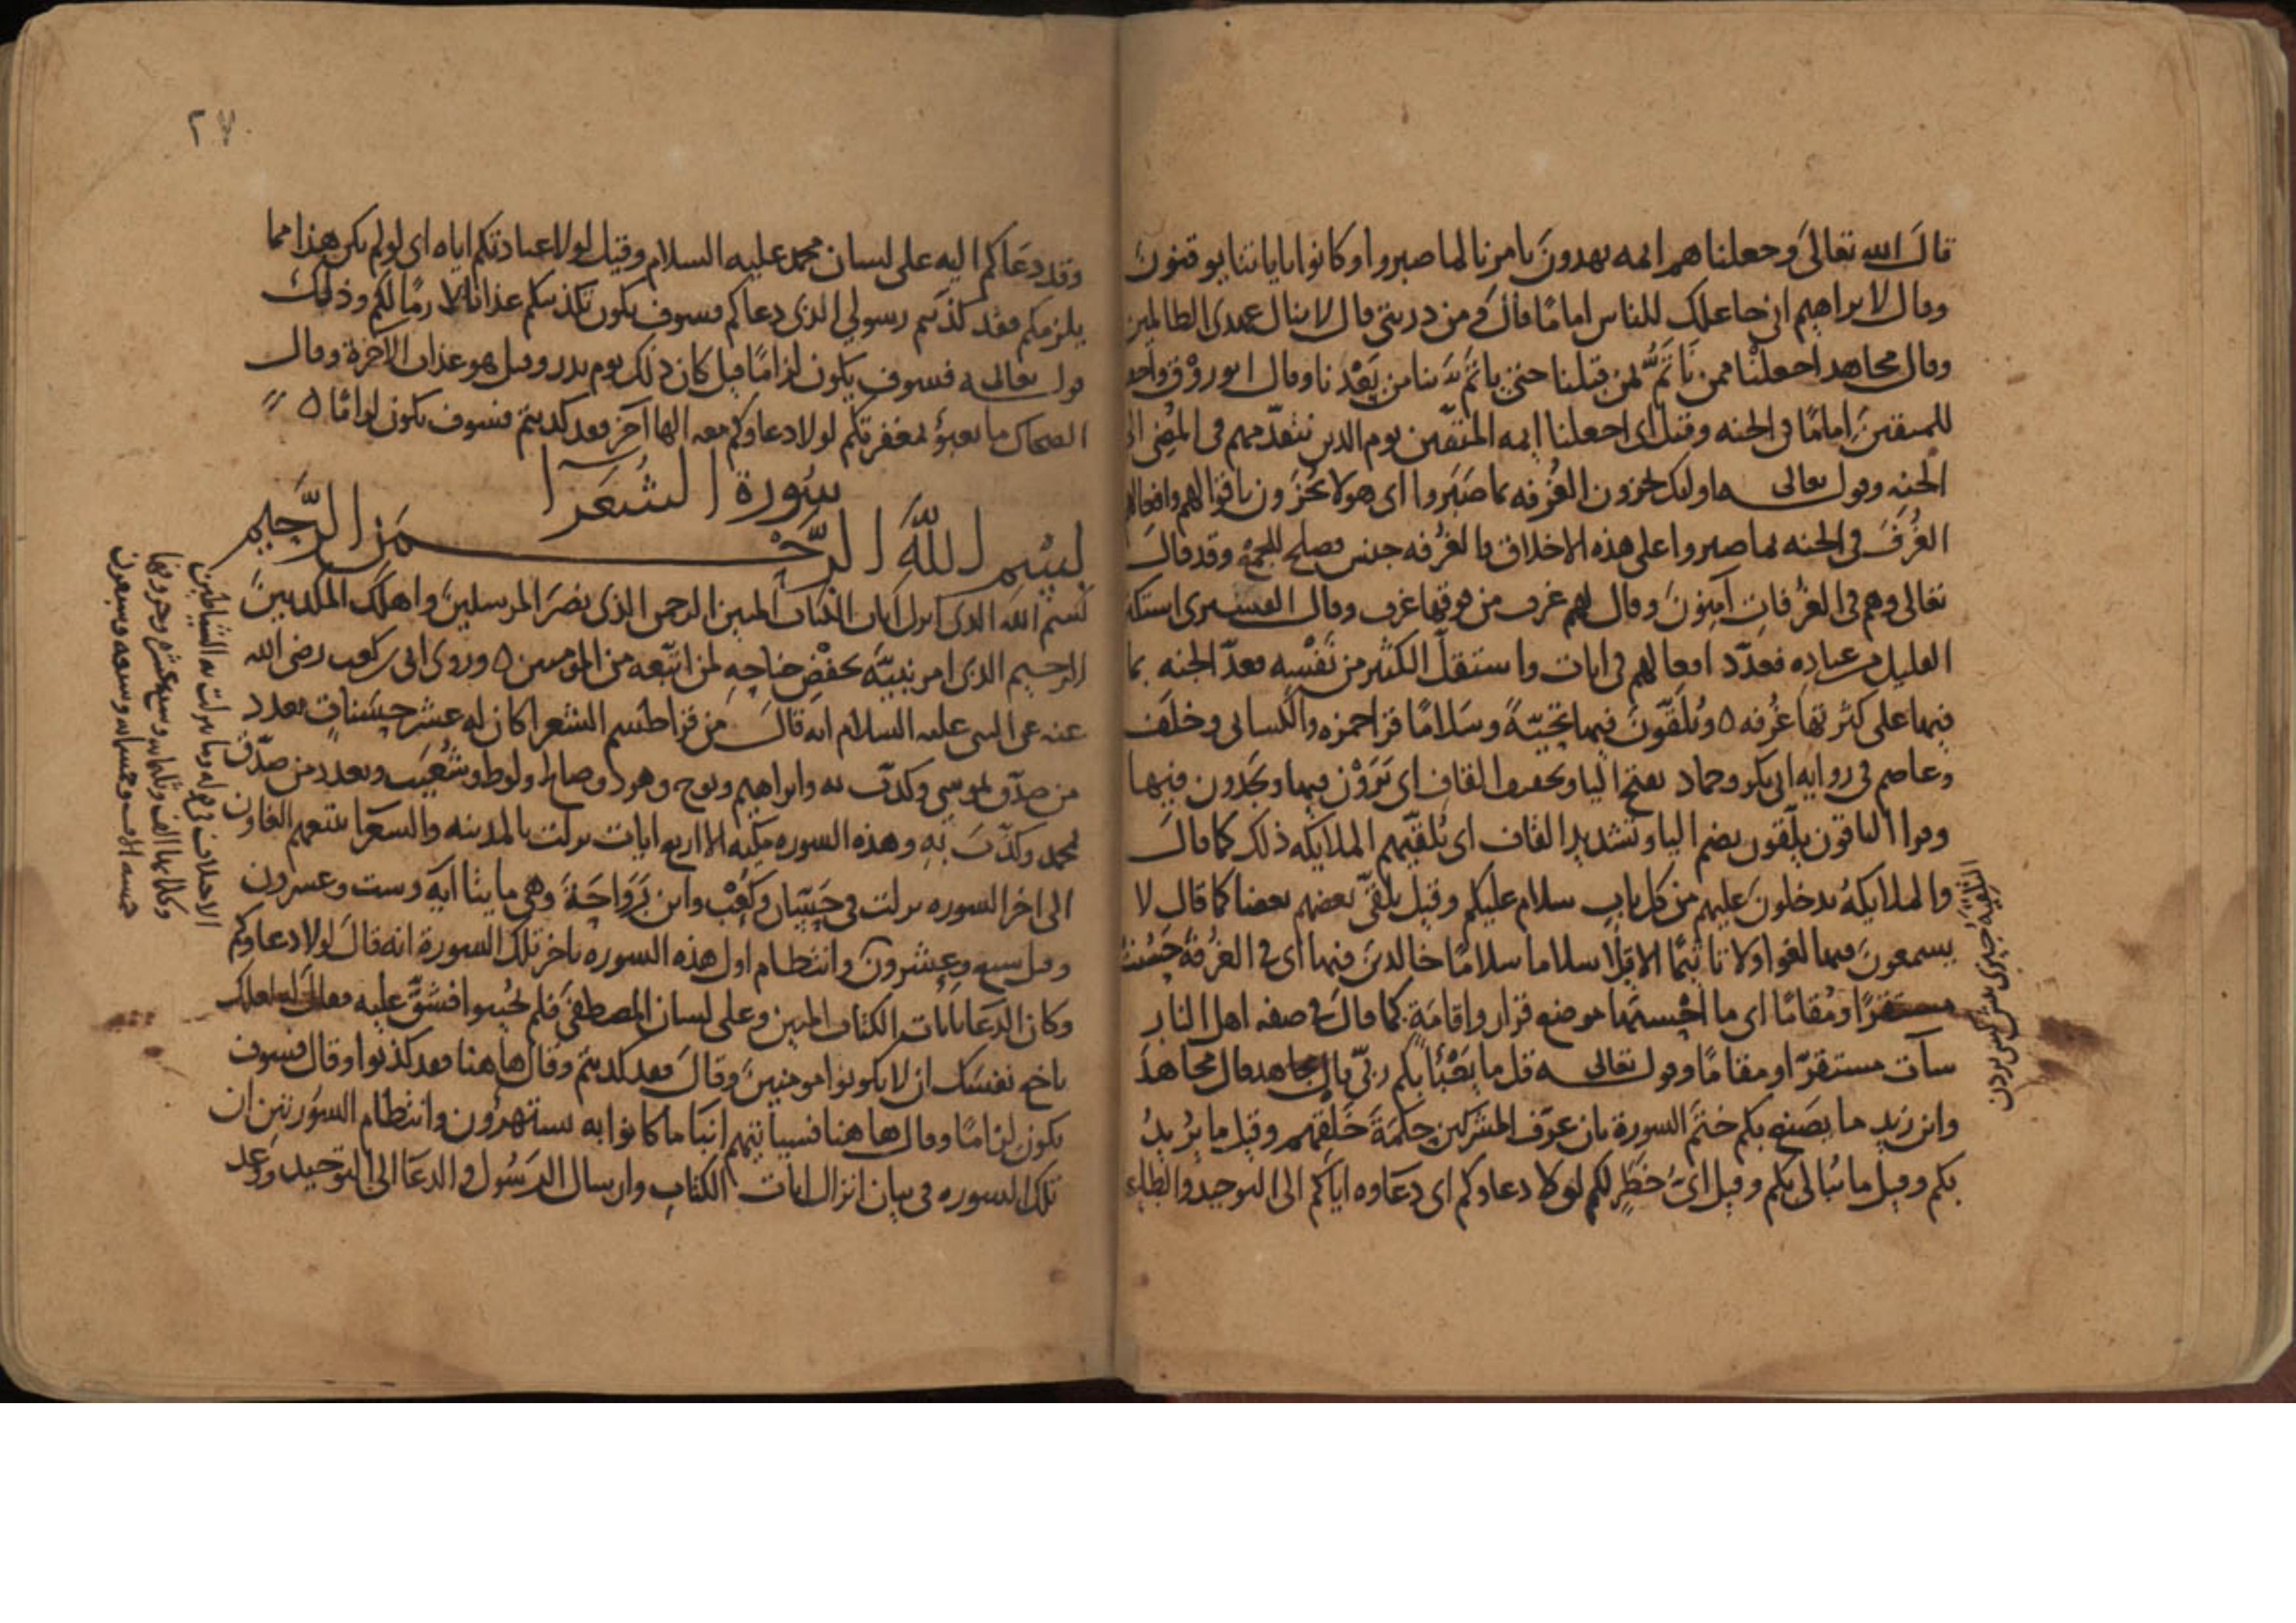 قال الله تعالى وجعلناهم ايمه يهدون بامرنا لما صبروا وكانوا باياتنا يوقنون
وقال لابراهيم اني جاعلك للناس اماما قال ومن ذريتي قال لا ينال عهدي الظالمين
وقال مجاهد اجعلنا ممن نأتم لمن قبلنا حتى يأتم بنا من بعدنا وقال ابو روق واجعلنا
للمتقين اماما في الجنه وقيل اي اجعلنا ايمه المتقين يوم الدين نتقدمهم في المضي الى
الجنه وقوله تعالى اوليك يجزون الغرفه بما صبروا اي هولا يجزون باقوالهم وافعالهم
الغرف في الجنه بما صبروا على هذه الاخلاق فالغرفه جنس فصلح للجمع وقد قال
تعالى وهم في الغرفات آمنون وقال لهم غرف من فوقها غرف وقال القشيري استكثر
القليل من عباده فعدد افعالهم في ايات واستقل الكثير من نفسه فعد الجنه بما
فيها على كثرتها غرفه ٥ ويلقون فيها تحية وسلاما قرا حمزه والكسائي وخلف
وعاصم في روايه ابي بكر وحماد بفتح اليا وتخفيف القاف اي يرون فيها ويجدون فيها
وقرا الباقون يلقون بضم اليا وتشديد القاف اي تلقيهم الملايكه ذلك كما قال
والملايكة يدخلون عليهم من كل باب سلام عليكم وقيل يلقي بعضهم بعضا كما قال لا
يسمعون فيها لغوا ولا تاثيما الا قيلا سلاما سلاما خالدين فيها اي في الغرفة حسنت
مستقرا ومقاما اي ما احسنها موضع قرار واقامة كما قال في صفه اهل النار
سآت مستقرا ومقاما وقوله تعالى قل ما يعبأ بكم ربي قال مجاهد
وابن زيد ما يصنع بكم ختم السورة بان عرف المشركين حكمة خلقهم وقيل ما يريد
بكم وقيل ما يبالي بكم وقيل اي خطر لكم لولا دعاوكم اي دعاوه اياكم الى التوحيد والطاعه
٢٧٠
وقد دعاكم اليه على لسان محمد عليه السلام وقيل لولا عبادتكم اياه اي لو لم يكن هذا مما
يلزمكم فقد كذبتم رسولي الذي دعاكم فسوف يكون تكذيبكم عذابا لازما لكم وذلك
قوله تعالى فسوف يكون لزاما قيل كان ذلك يوم بدر وقيل هو عذاب الآخرة وقال
الضحاك ما يعبؤ بمغفرتكم لولا دعاوكم معه الها آخر فقد كذبتم فسوف يكون لزاما ٥
سورة الشعرآ
بسم الله الرحمن الرحيم
بسم الله الذي انزل آيات الكتاب المبين الرحمن الذي نصر المرسلين واهلك المكذبين
الرحيم الذي امر نبيه بخفض جناحه لمن اتبعه من المومنين ٥ وروى ابي بن كعب رضي الله
عنه عن النبي عليه السلام انه قال من قرا طسم الشعرا كان له عشر حسنات بعدد
من صدق بموسى وكذب به وابراهيم ونوح وهود وصالح ولوط وشعيب وبعدد من صدق
بمحمد وكذب به وهذه السوره مكيه الا اربع ايات نزلت بالمدينه والشعرا يتبعهم الغاون
الى اخر السوره نزلت في حسان وكعب وابن رواحة وهي مايتا آية وست وعشرون
وقيل سبع وعشرون وانتظام اول هذه السوره باخر تلك السورة انه قال لولا دعاوكم
وكان الدعا بايات الكتاب المبين وعلى لسان المصطفى فلم يجيبوا فشق عليه فقال لعلك
باخع نفسك ان لا يكونوا مومنين وقال فقد كذبتم وقال هاهنا فقد كذبوا وقال فسوف
يكون لزاما وقال هاهنا فسياتيهم انبا ما كانوا به يستهزؤن وانتظام السورتين ان
تلك السوره في بيان انزال ايات الكتاب وارسال الرسول والدعا الى التوحيد ووعد
الاختلاف في قوله وما تنزلت به الشياطين
وكلماتها الف وثلثمايه وسبع عشره وحروفها
خمسه الاف وخمسمايه وسبعه وسبعون